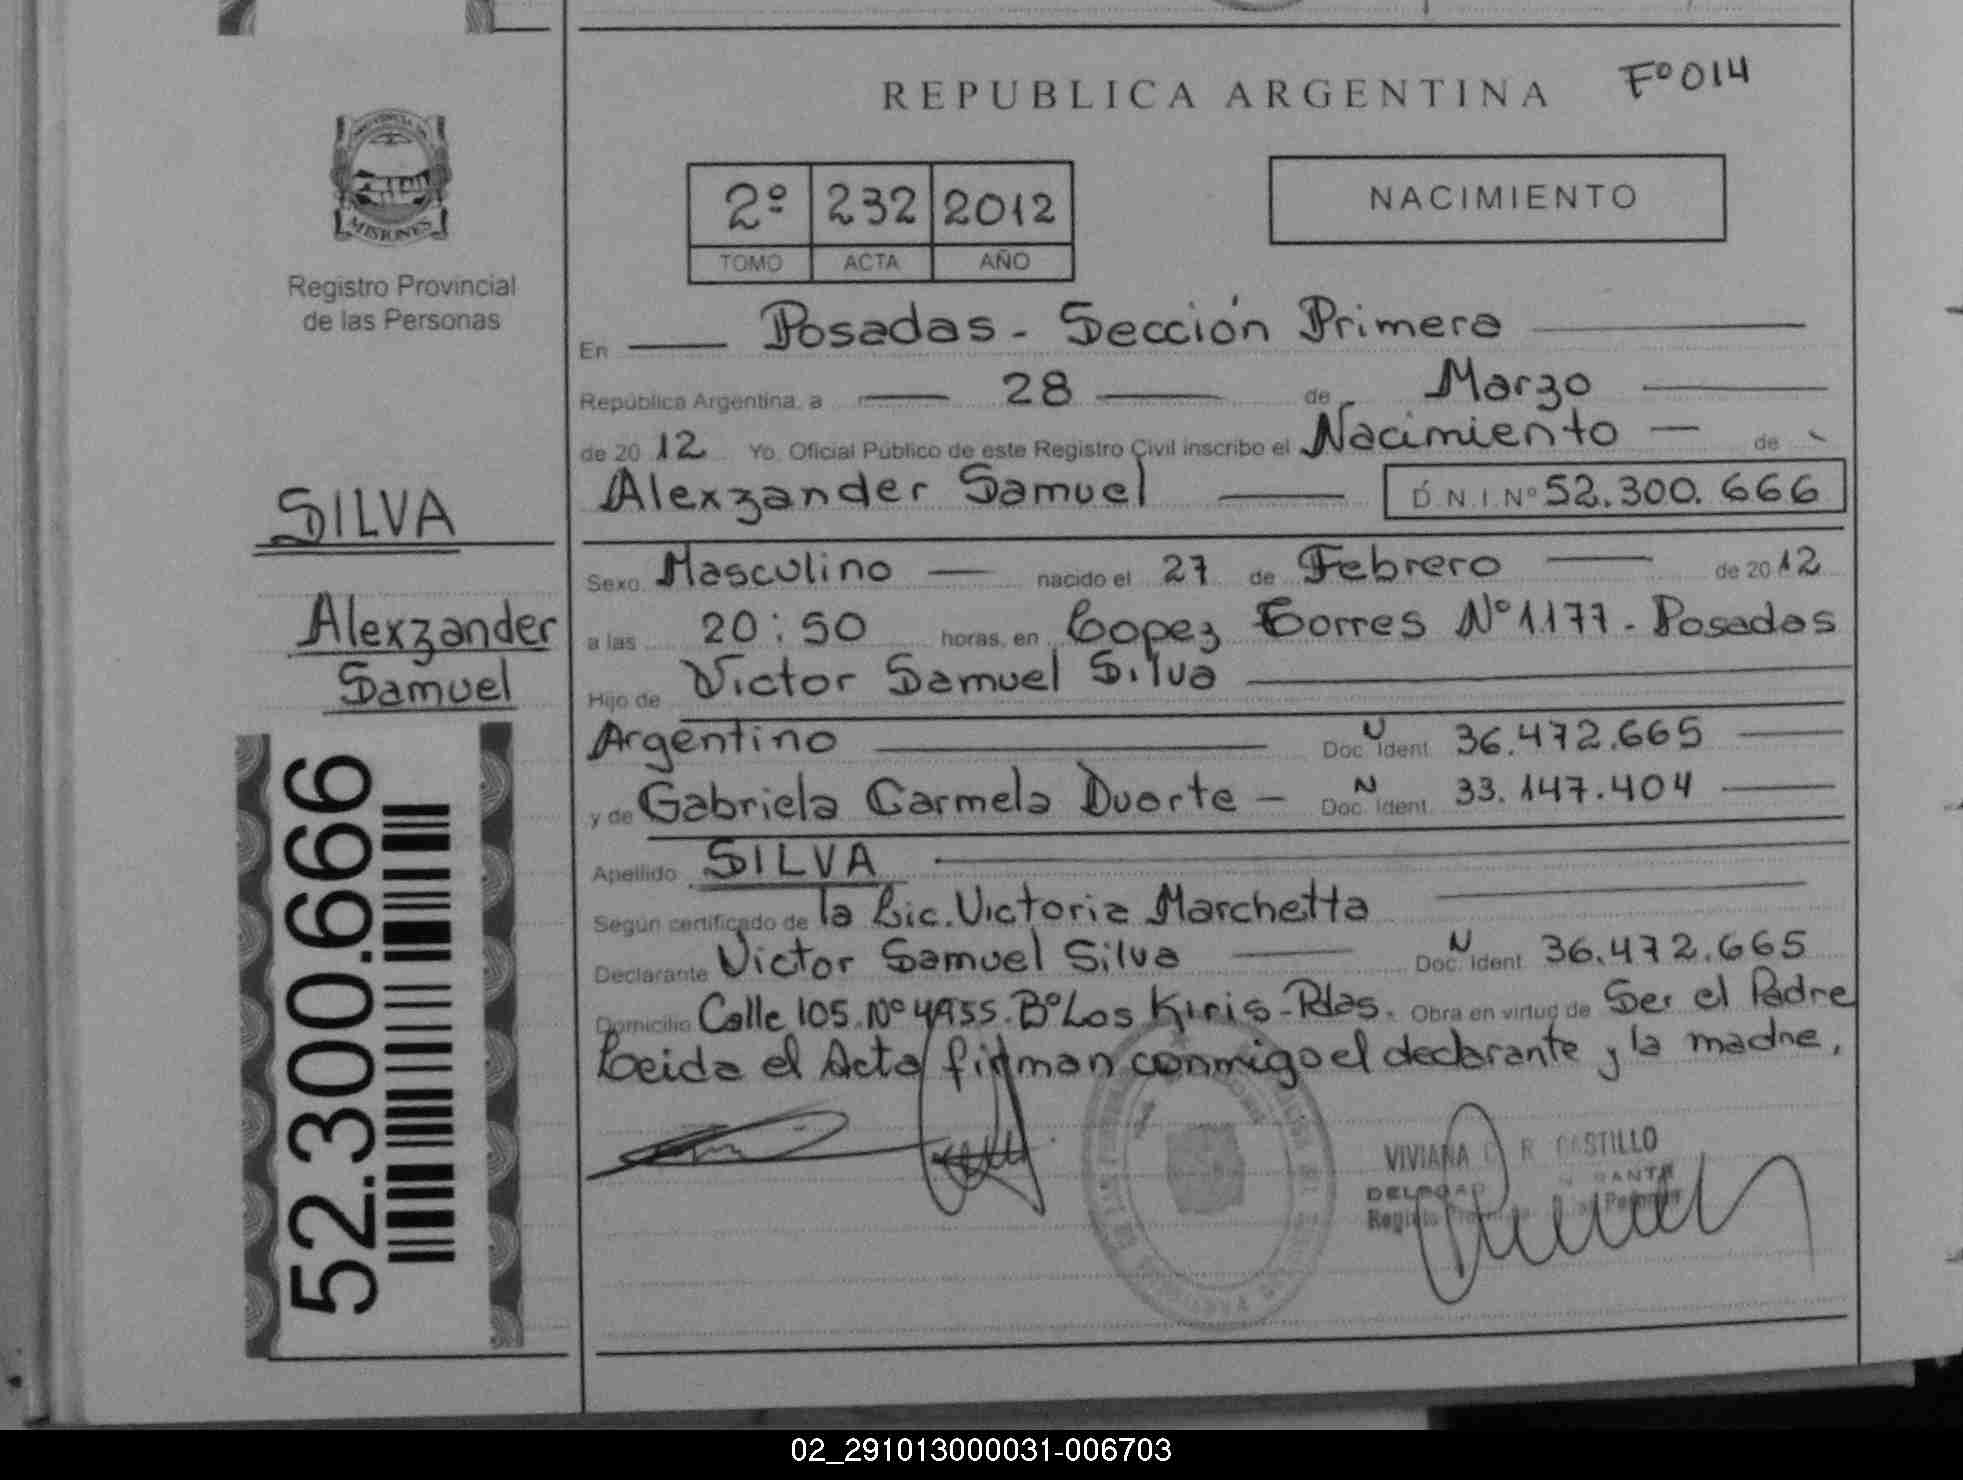 REPUBLICA ARGENTINA
Fº 014
MISIONES
Registro Provincial
de las Personas
2º 232 2012
TOMO ACTA AÑO
NACIMIENTO
En Posadas - Sección Primera
República Argentina, a 28 de Marzo
de 2012 Yo, Oficial Público de este Registro Civil inscribo el Nacimiento de
Alexzander Samuel D.N.I.Nº 52.300.666
SILVA
Alexzander
Samuel
52.300.666
Sexo Masculino nacido el 27 de Febrero de 2012
a las 20:50 horas, en Lopez Torres Nº 1177 - Posadas
Hijo de Victor Samuel Silva
Argentino Doc. Ident. N 36.472.665
y de Gabriela Carmela Duarte - Doc. Ident. N 33.147.404
Apellido SILVA
Según certificado de la Lic. Victoria Marchetta
Declarante Victor Samuel Silva Doc. Ident. N 36.472.665
Domicilio Calle 105. Nº 4955. Bº Los Kiris - Pdas. Obra en virtud de Ser el Padre
Leida el Acta firman conmigo el declarante y la madre,
VIVIANA R CASTILLO
02_291013000031-006703